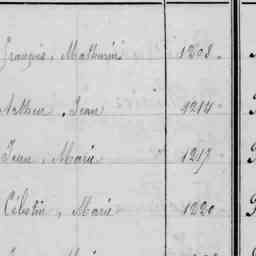 François, Mathurin 1208.
Arthur, Jean 1214
Jean, Marie 1217
Célestin, Marie 1220